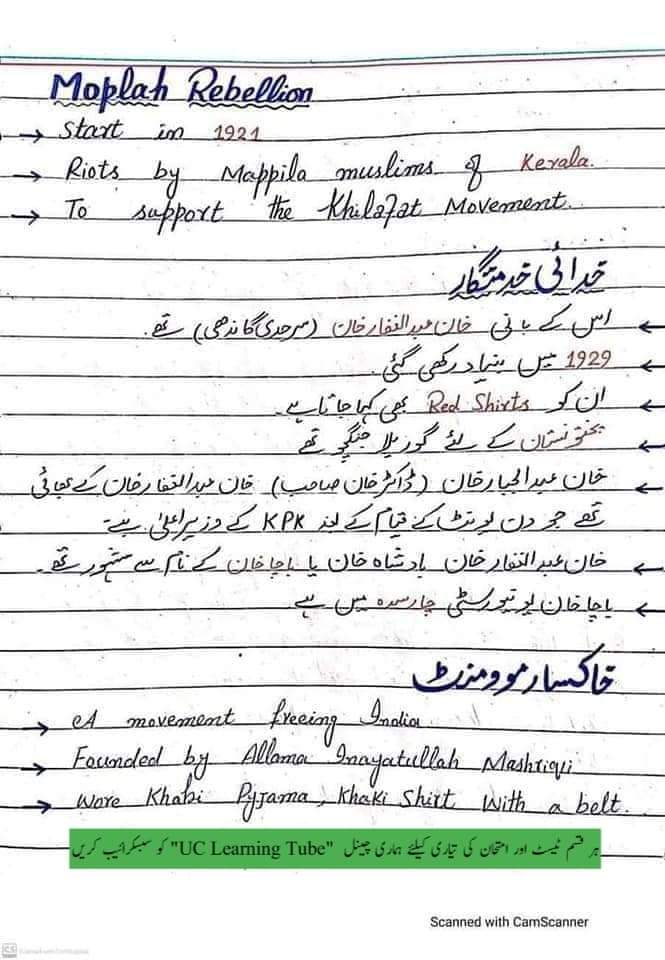 Moplah Rebellion
→ Start in 1921
→ Riots by Mappila muslims of Kerala.
→ To support the Khilafat Movement.
خدائی خدمتگار
← اس کے بانی خان عبدالغفار خان (سرحدی گاندھی) تھے۔
← 1929 میں بنیاد رکھی گئی۔
← ان کو Red Shirts بھی کہا جاتا ہے۔
← پختونستان کے لئے گوریلا جنگجو تھے
← خان عبدالجبار خان (ڈاکٹر خان صاحب) خان عبدالغفار خان کے بھائی
تھے جو ون یونٹ کے قیام کے بعد KPK کے وزیر اعلیٰ بنے۔
← خان عبدالغفار خان بادشاہ خان یا باچا خان کے نام سے مشہور تھے۔
← باچا خان یونیورسٹی چارسدہ میں ہے۔
خاکسار موومنٹ
→ A movement freeing India
→ Founded by Allama Inayatullah Mashriqui
→ Wore Khaki Pyjama, Khaki Shirt With a belt.
ہر قسم ٹیسٹ اور امتحان کی تیاری کیلئے ہماری چینل "UC Learning Tube" کو سبسکرائیب کریں
Scanned with CamScanner
CS Scanned with CamScanner